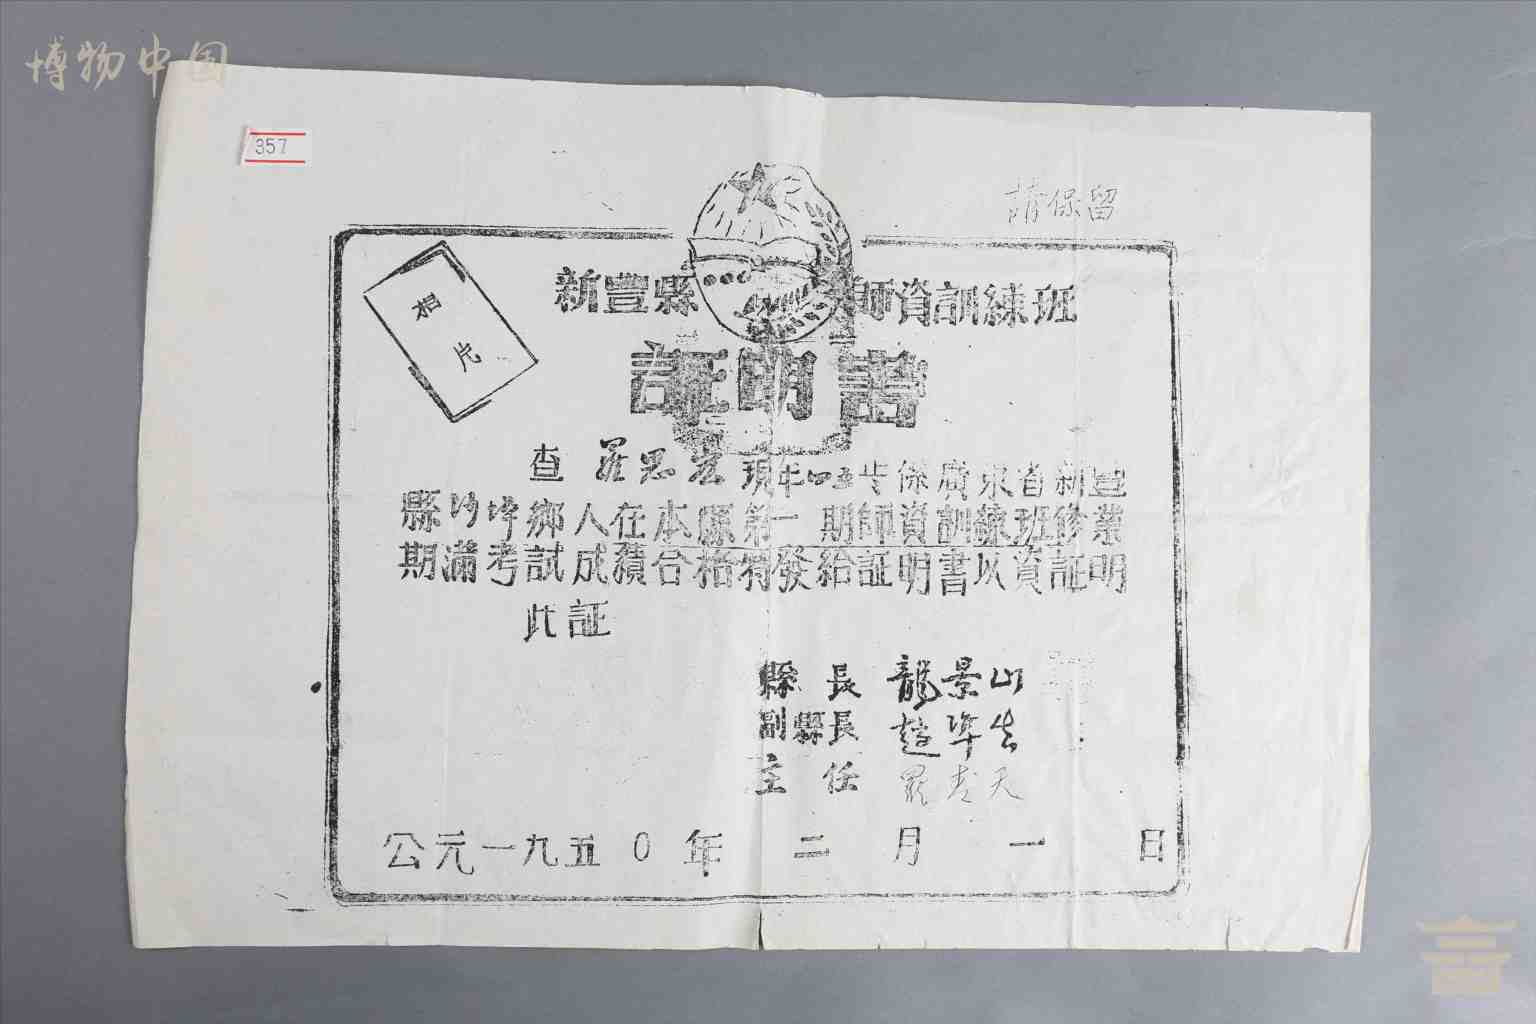 博物中国
357
請保留
相片
新豐縣師資訓練班
証明書
查羅思宏現年四五岁係廣東省新豐
縣沙坪鄉人在本縣第一期師資訓練班修業
期滿考試成績合格特發給証明書以資証明
此証
縣長 龍景山
副縣長 趙準生
主任 羅 天
公元一九五0年二月一日